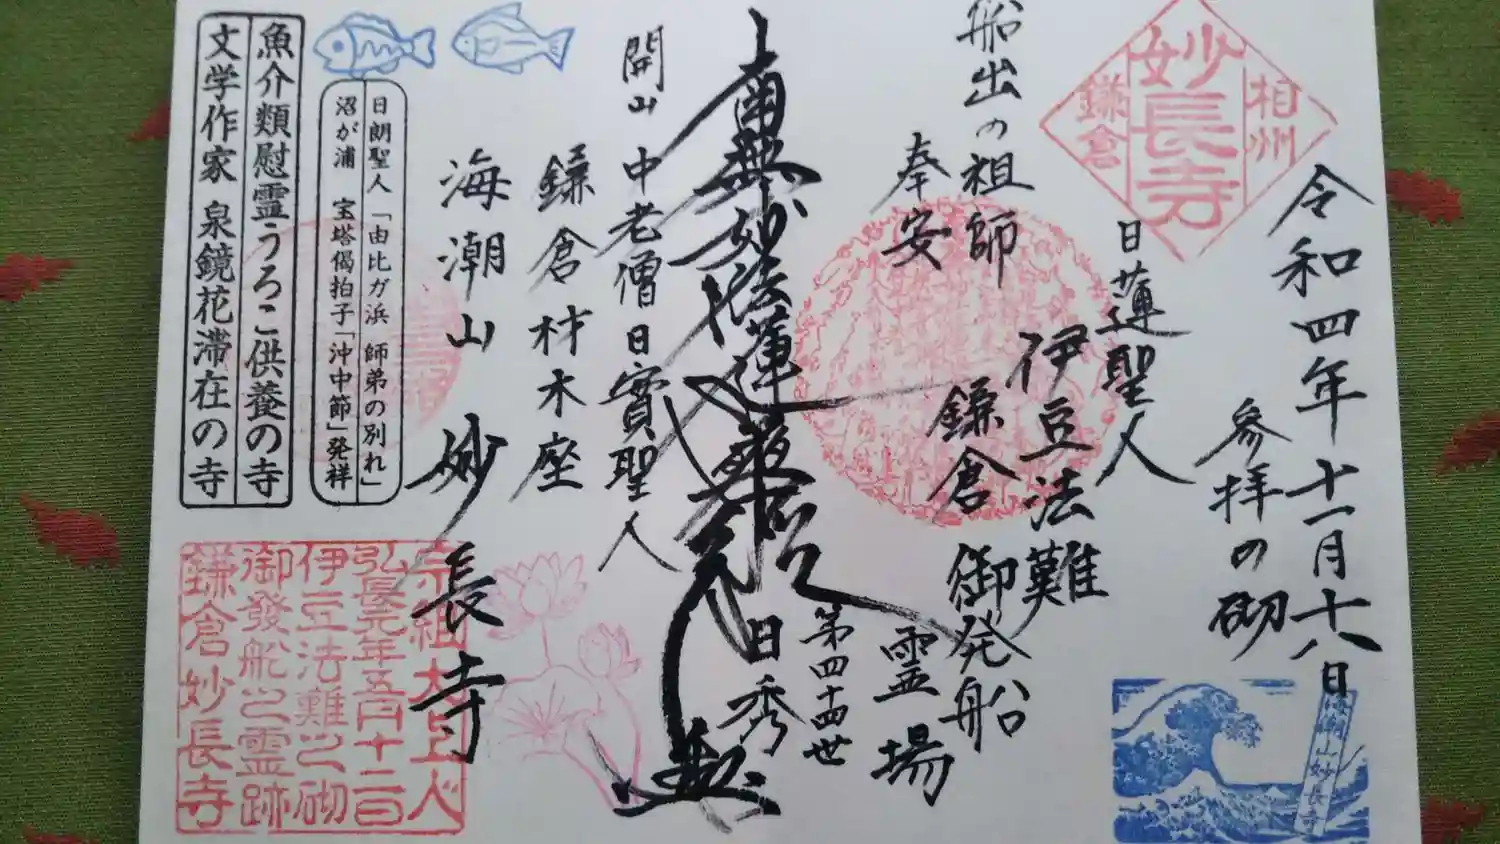 相州
妙長寺
鎌倉
令和四年十一月十八日
参拝の砌
日蓮聖人
伊豆法難
鎌倉御発船
霊場
船出の祖師
奉安
南無妙法蓮華経
第四十四世
日秀
開山中老僧日實聖人
鎌倉材木座
海潮山妙長寺
日朗聖人「由比ガ浜 師弟の別れ」
沼が浦 宝塔偈拍子「沖中節」発祥
魚介類慰霊うろこ供養の寺
文学作家 泉鏡花滞在の寺
宗祖大上人
弘長元年五月十二日
伊豆法難之砌
御發船之霊跡
鎌倉妙長寺
海潮山妙長寺